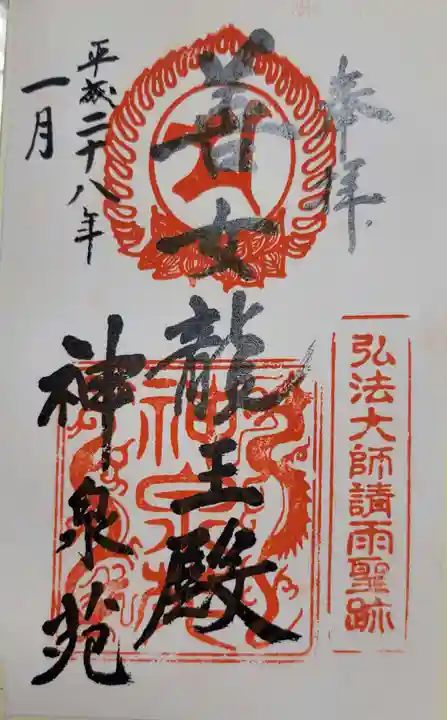 奉拝
弘法大師請雨聖跡
善女龍王殿
神泉苑
平成二十八年
一月
神泉苑